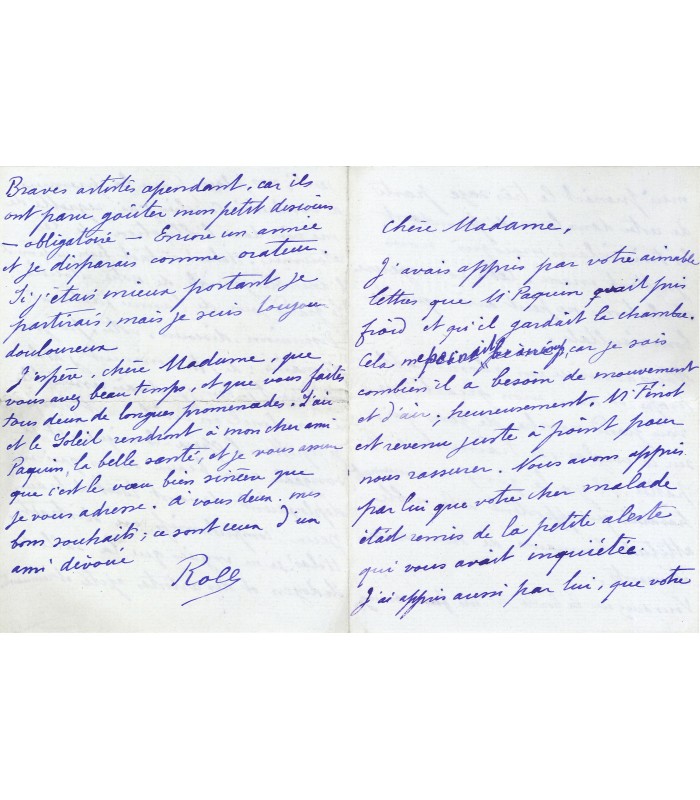 Chère Madame,
J'avais appris par votre aimable
lettres que Mr Paquin avait pris
froid et qu'il gardait la chambre.
Cela me car je sais
combien il a besoin de mouvement
et d'air; heureusement. Mr Finot
est revenu juste à point pour
nous rassurer. Nous avons appris
par lui que votre cher malade
était remis de la petite alerte
qui vous avait inquiétée.
J'ai appris aussi par lui, que votre
Braves artistes cependant, car ils
ont paru goûter mon petit discours
— obligatoire — Encore un année
et je disparais comme orateur.
Si j'étais mieux portant je
partirais, mais je suis toujours
douloureux
J'espère, chère Madame, que
vous avez beau temps, et que vous faites
tous deux de longues promenades. L'air
et le Soleil rendront à mon cher ami
Paquin, la belle santé, et je vous assure
que c'est le vœu bien sincère que
je vous adresse. à vous deux. mes
bons souhaits; ce sont ceux d'un
ami dévoué
Roll